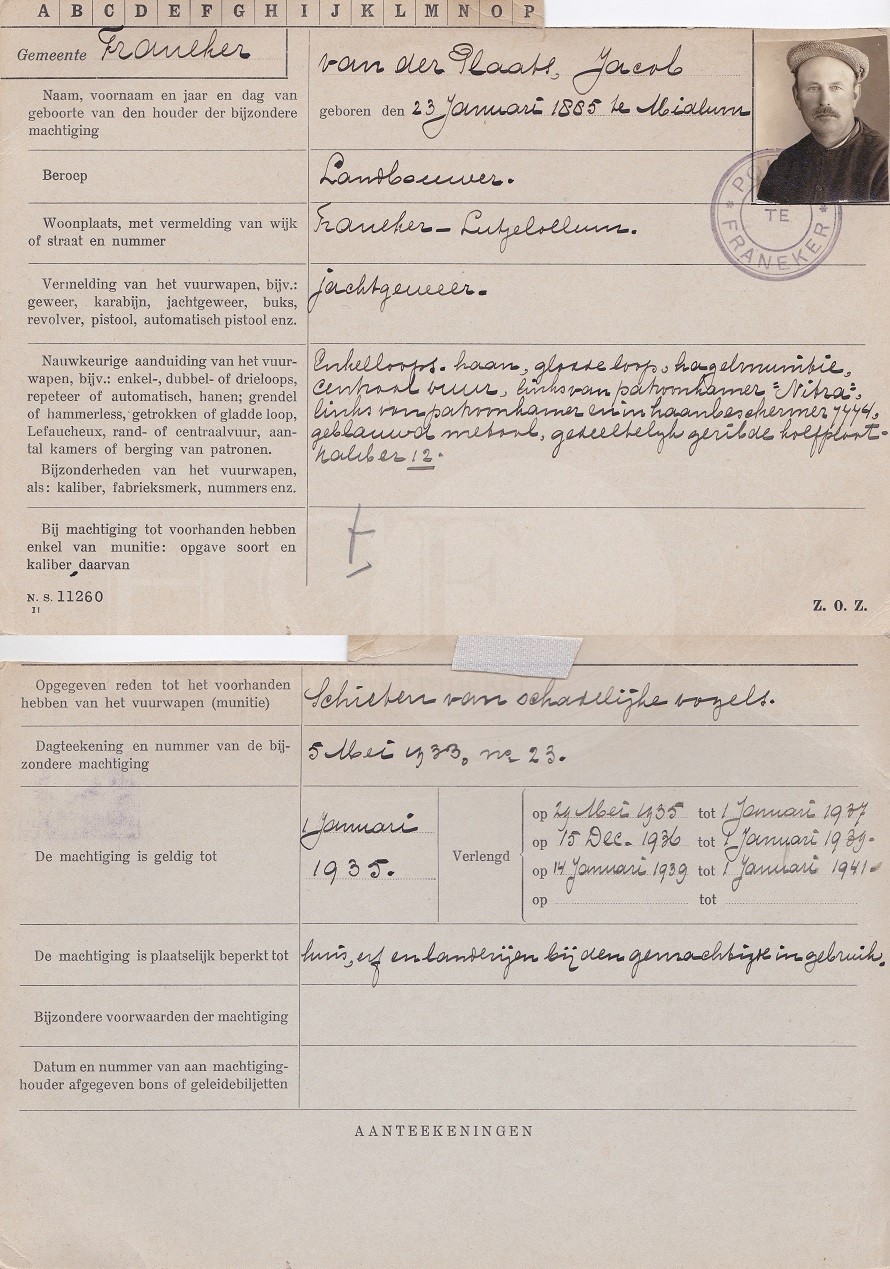 A B C D E F G H I J K L M N O P
Gemeente Franeker
Naam, voornaam en jaar en dag van
geboorte van den houder der bijzondere
machtiging
van der Plaats, Jacob
geboren den 23 Januari 1885 te Midlum
POLITIE
TE
* FRANEKER *
Beroep
Landbouwer.
Woonplaats, met vermelding van wijk
of straat en nummer
Franeker - Lutjelollum.
Vermelding van het vuurwapen, bijv.:
geweer, karabijn, jachtgeweer, buks,
revolver, pistool, automatisch pistool enz.
jachtgeweer.
Nauwkeurige aanduiding van het vuur-
wapen, bijv.: enkel-, dubbel- of drieloops,
repeteer of automatisch, hanen; grendel
of hammerless, getrokken of gladde loop,
Lefaucheux, rand- of centraalvuur, aan-
tal kamers of berging van patronen.
Bijzonderheden van het vuurwapen,
als: kaliber, fabrieksmerk, nummers enz.
Enkelloops. haan, gladde loop, hagelmunitie,
centraal vuur, links van patroonkamer "Nitra",
links van patroonkamer en in haanbeschermer 7474,
geblauwd metaal, gedeeltelijk geribde kolfplaat-
kaliber 12.
Bij machtiging tot voorhanden hebben
enkel van munitie: opgave soort en
kaliber daarvan
N. S. 11260
II
Z. O. Z.
Opgegeven reden tot het voorhanden
hebben van het vuurwapen (munitie)
Schieten van schadelijke vogels.
Dagteekening en nummer van de bij-
zondere machtiging
5 Mei 1933, no 23.
De machtiging is geldig tot
1 Januari
1935.
Verlengd
op 29 Mei 1935 tot 1 Januari 1937
op 15 Dec. 1936 tot 1 Januari 1939-
op 14 Januari 1939 tot 1 Januari 1941-
op tot
De machtiging is plaatselijk beperkt tot
huis, erf en landerijen bij den gemachtigde in gebruik.
Bijzondere voorwaarden der machtiging
Datum en nummer van aan machtiging-
houder afgegeven bons of geleidebiljetten
AANTEEKENINGEN